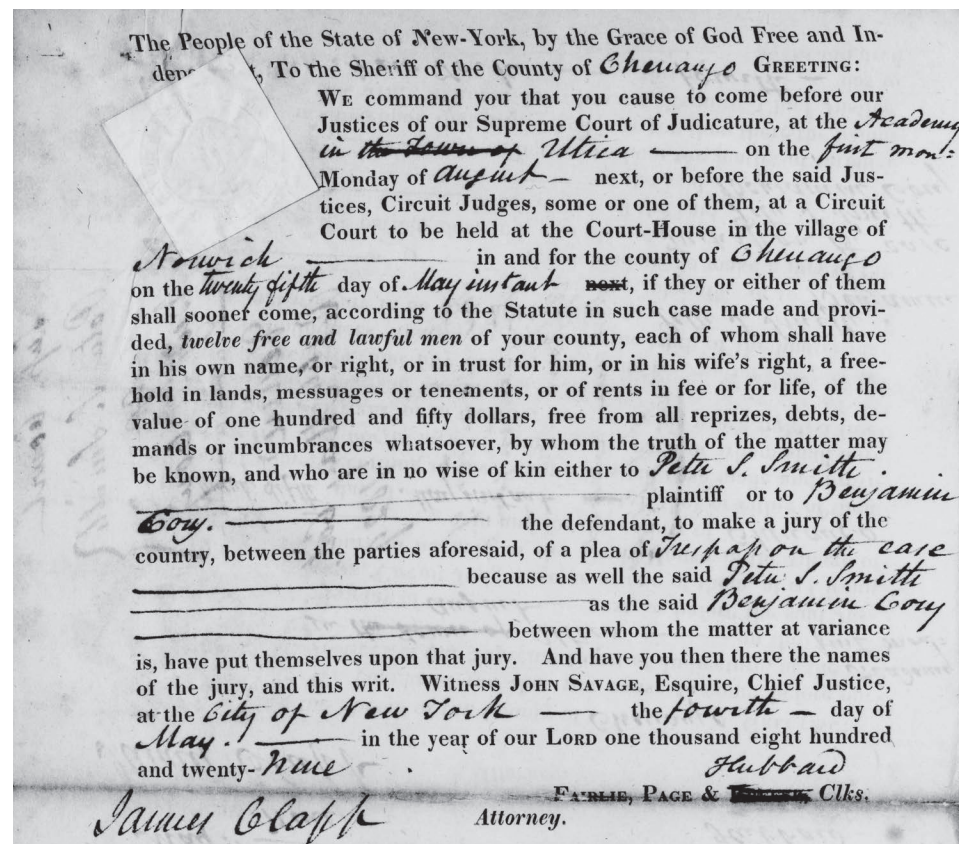 The People of the State of New-York, by the Grace of God Free and In-
dependent, To the Sheriff of the County of Chenango GREETING:
WE command you that you cause to come before our
Justices of our Supreme Court of Judicature, at the Academy
in the Town of Utica on the first mon:
Monday of August next, or before the said Jus-
tices, Circuit Judges, some or one of them, at a Circuit
Court to be held at the Court-House in the village of
Norwich in and for the county of Chenango
on the twenty fifth day of May instant next, if they or either of them
shall sooner come, according to the Statute in such case made and provi-
ded, twelve free and lawful men of your county, each of whom shall have
in his own name, or right, or in trust for him, or in his wife's right, a free-
hold in lands, messuages or tenements, or of rents in fee or for life, of the
value of one hundred and fifty dollars, free from all reprizes, debts, de-
mands or incumbrances whatsoever, by whom the truth of the matter may
be known, and who are in no wise of kin either to Peter S. Smith.
plaintiff or to Benjamin
Cory. the defendant, to make a jury of the
country, between the parties aforesaid, of a plea of Trespass on the case
because as well the said Peter S. Smith
as the said Benjamin Cory
between whom the matter at variance
is, have put themselves upon that jury. And have you then there the names
of the jury, and this writ. Witness JOHN SAVAGE, Esquire, Chief Justice,
at the City of New York the fourth day of
May. in the year of our LORD one thousand eight hundred
and twenty-nine
Hubbard
FAIRLIE, PAGE & Clks.
James Clapp Attorney.